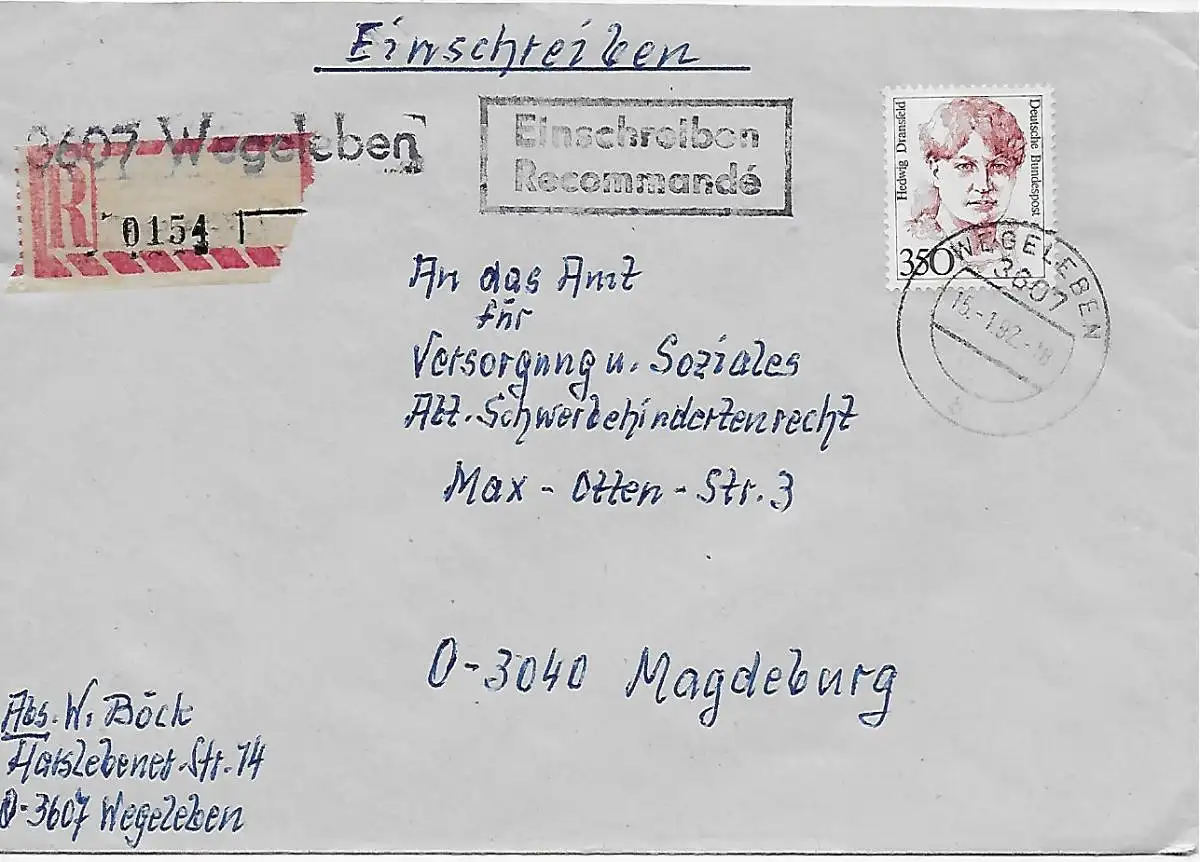 Einschreiben
3607 Wegeleben
R
0154
Einschreiben
Recommandé
Hedwig Dransfeld
Deutsche Bundespost
350
WEGELEBEN
3607
15.-1.92.-18
b
An das Amt
für
Versorgung u. Soziales
Abt. Schwerbehindertenrecht
Max - Otten - Str. 3
O-3040 Magdeburg
Abs. W. Böck
Harslebener-Str. 14
O-3607 Wegeleben